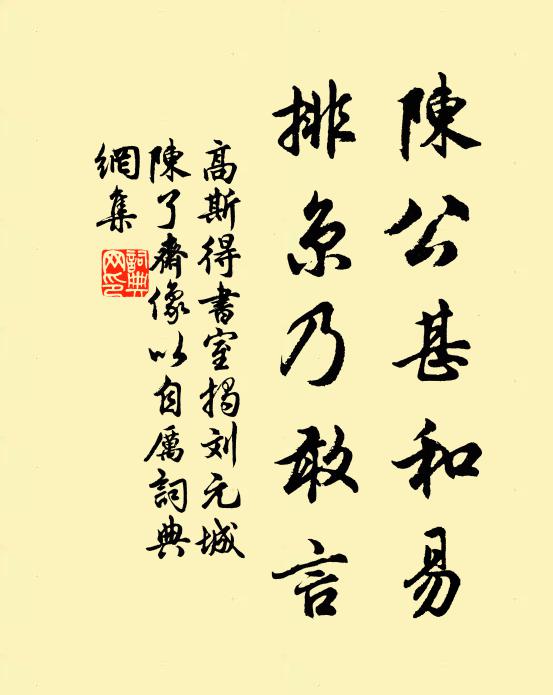 陳公甚和易
排京乃敢言
高斯得書室揭刘元城
陳了齋像以自厲詞典
網集
詞典網印